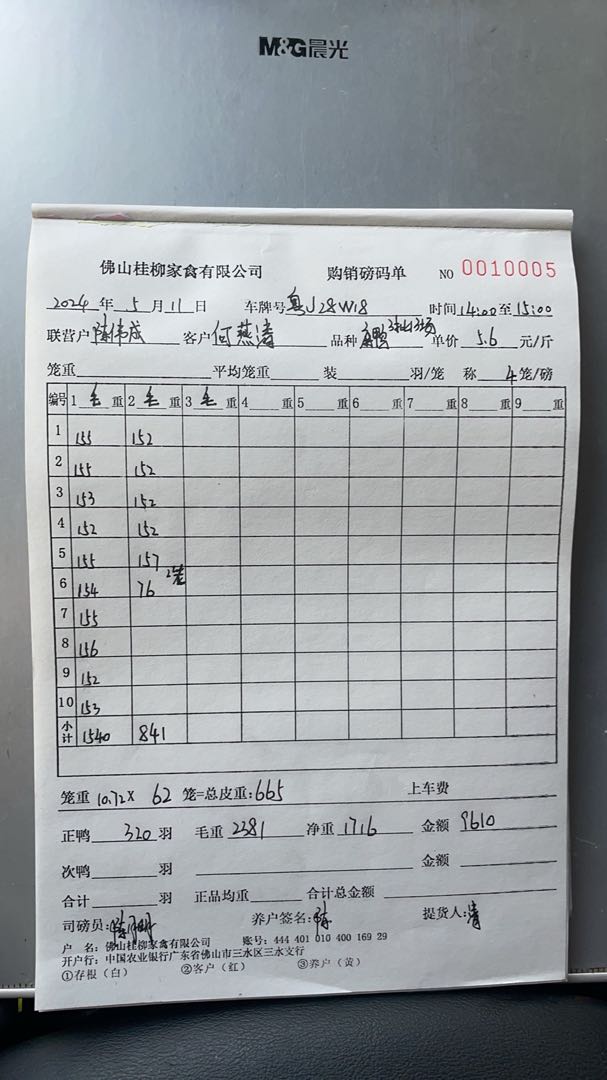 M&G晨光
佛山桂柳家禽有限公司 购销磅码单 NO 0010005
2024 年 5 月 11 日 车牌号 粤J28W18 时间 14:00 至 15:00
联营户 陈伟成 客户 何燕涛 品种 单价 5.6 元/斤
笼重 平均笼重 装 羽/笼 称 4 笼/磅
编号 1 毛 重 2 毛 重 3 毛 重 4 重 5 重 6 重 7 重 8 重 9 重
1 155 152
2 155 152
3 153 152
4 152 152
5 155 157
6 154 76 2笼
7 155
8 156
9 152
10 153
小计 1540 841
笼重 10.72× 62 笼=总皮重:665 上车费
正鸭 320 羽 毛重 2381 净重 1716 金额 9610
次鸭 羽 金额
合计 羽 正品均重 合计总金额
司磅员: 养户签名: 陈 提货人: 涛
户 名: 佛山桂柳家禽有限公司 账号: 444 401 010 400 169 29
开户行: 中国农业银行广东省佛山市三水区三水支行
①存根(白) ②客户(红) ③养户(黄)